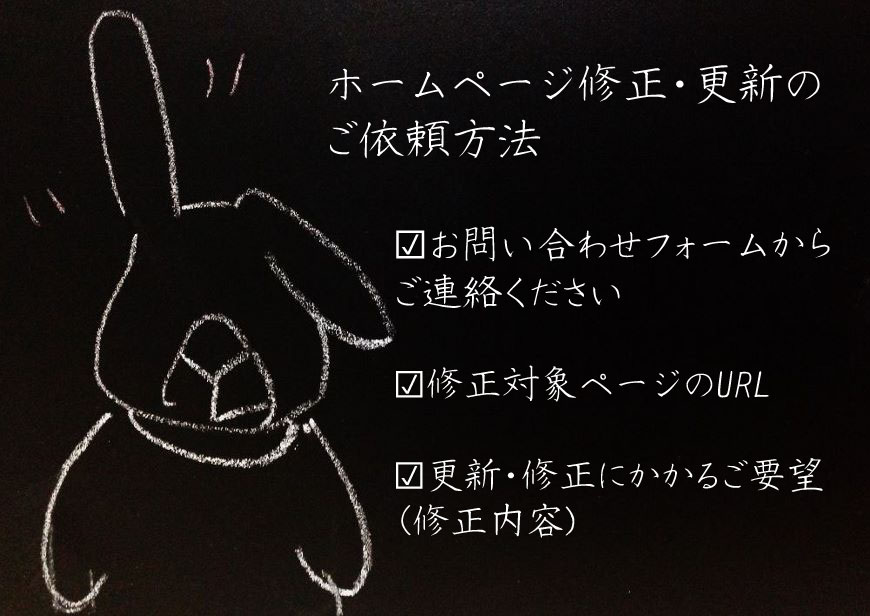 ホームページ修正・更新の
ご依頼方法
☑お問い合わせフォームから
ご連絡ください
☑修正対象ページのURL
☑更新・修正にかかるご要望
（修正内容）